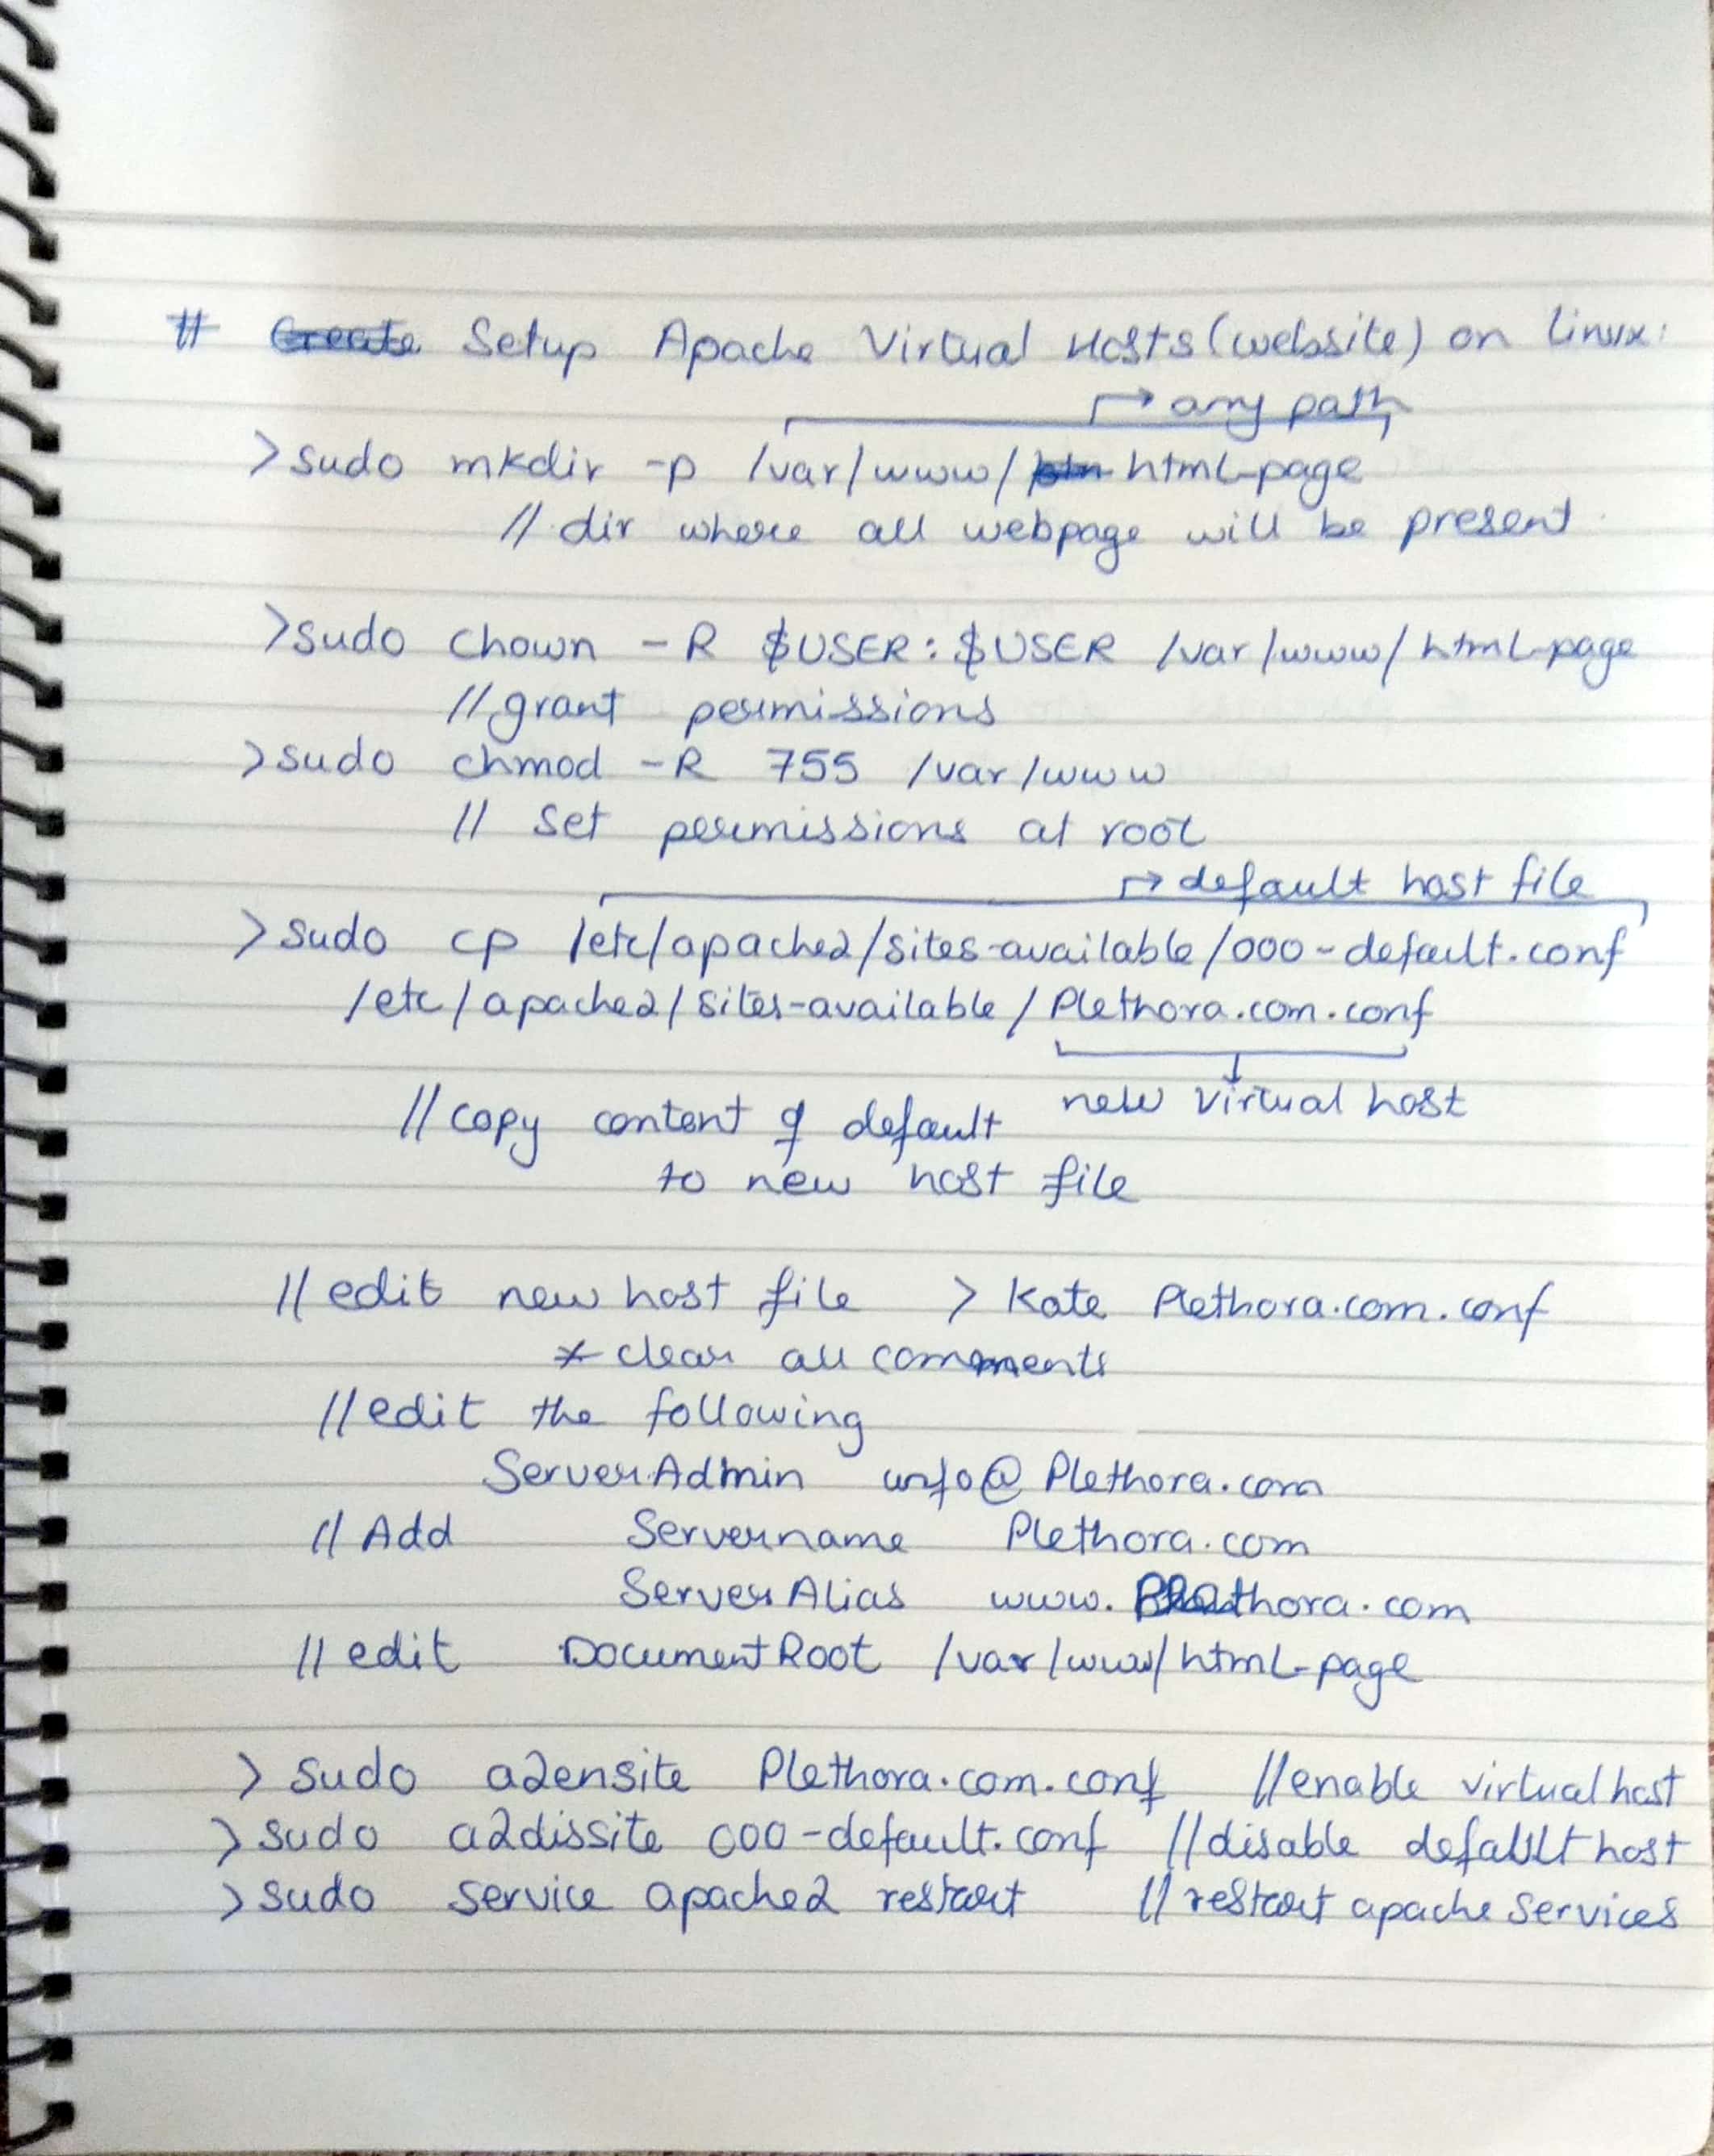 # Setup Apache Virtual Hosts (website) on linux:
→ any path
> sudo mkdir -p /var/www/ html-page
// dir where all webpage will be present
> sudo chown -R $USER:$USER /var/www/html-page
// grant permissions
> sudo chmod -R 755 /var/www
// set permissions at root
→ default host file
> sudo cp /etc/apache2/sites-available/000-default.conf
/etc/apache2/sites-available/Plethora.com.conf
new virtual host
// copy content of default
to new host file
// edit new host file > Kate Plethora.com.conf
* clear all comments
// edit the following
ServerAdmin info@Plethora.com
// Add Servername Plethora.com
ServerAlias www.Plethora.com
// edit DocumentRoot /var/www/html-page
> sudo a2ensite Plethora.com.conf // enable virtual host
> sudo a2dissite 000-default.conf // disable default host
> sudo service apache2 restart // restart apache services